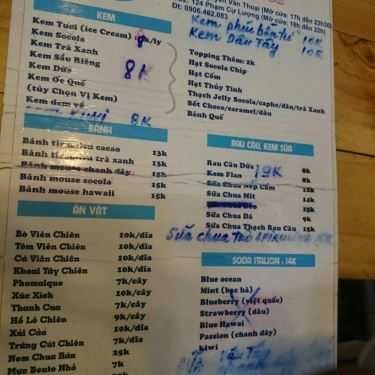 124 Phạm Cự Lượng (Mở cửa: 17h đến 22h30
Đt: 0906.462.083
KEM
Kem Tươi (ice Cream)
Kem Socola
Kem Trà Xanh
Kem Sầu Riêng
Kem Dừa
Kem Ốc Quế
(tùy Chọn Vị Kem)
Kem đem về
8K
8K
Kem Dâu Tây 10K
Topping Thêm: 2k
Hạt Socola Chip
Hạt Cốm
Hạt Thủy Tinh
Thạch Jelly Socola/capho/dâu/trà Xanh
Sốt Choco/caramel/dâu
Bánh Quế
BÁNH
Bánh tiramisu cacao 13k
Bánh tiramisu trà xanh 15k
Bánh mousse chanh dây 15k
Bánh mousse socola 15k
Bánh mousse hawaii 15k
RAU CÂU, KEM SỮA
Rau Câu Dừa 8k
Kem Flan 19K
Sữa Chua Nếp Cẩm
Sữa Chua Mít
Sữa Chua Dẻo
Sữa Chua Đá
Sữa Chua Thạch Rau Câu 15k
Sữa chua
ĂN VẶT
Bò Viên Chiên 10k/dĩa
Tôm Viên Chiên 10k/dĩa
Cá Viên Chiên 10k/dĩa
Khoai Tây Chiên 10k/dĩa
Phomaique 7k/cây
Xúc Xích 10k/cây
Thanh Cua 7k/cây
Hồ Lô Chiên 9k/cây
Xủi Cảo 10k/dĩa
Trứng Cút Chiên 7k/dĩa
Nem Chua Rán 25k
Mực Bento Nhỏ 7k
SODA ITALIAN : 14K
Blue ocean
Mint (bạc hà)
Blueberry (việt quốc)
Strawberry (dâu)
Blue Hawai
Passion (chanh dây)
kiwi